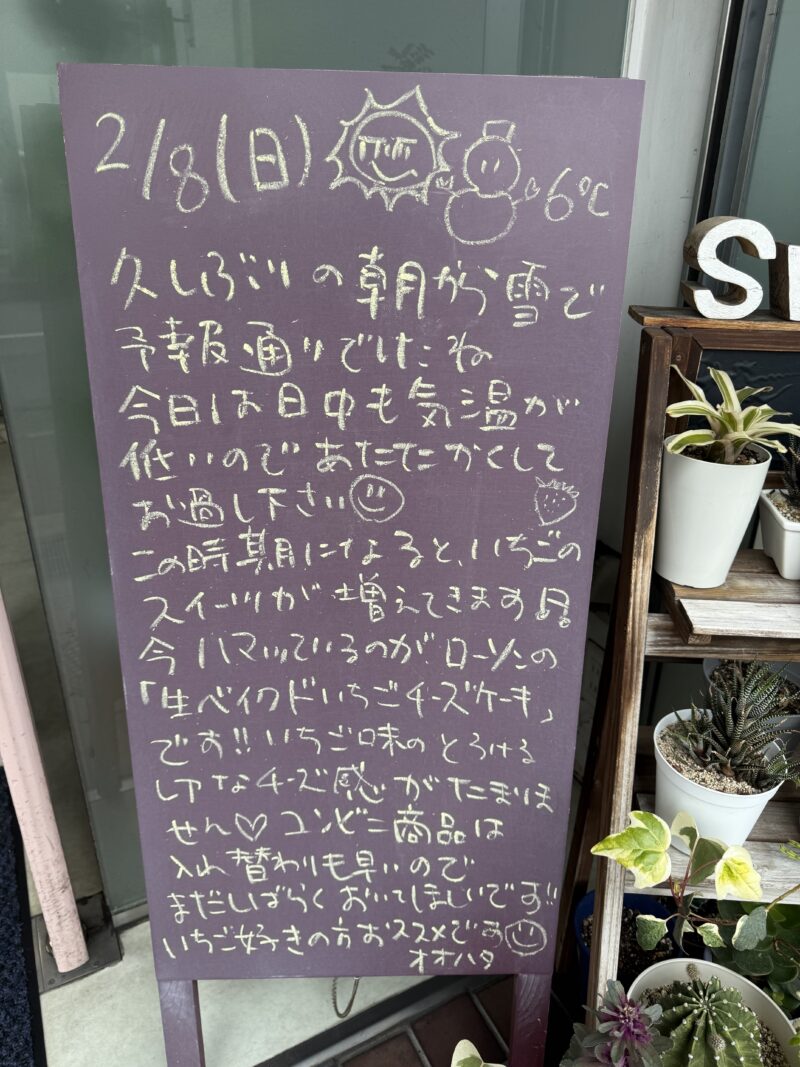 2/8(日) 6℃
久しぶりの朝から雪で
予報通りでしたね
今日は日中も気温が
低いのであたたかくして
お過し下さい
この時期になると、いちごの
スイーツが増えてきます♫
今ハマっているのが、ローソンの
「生ベイクドいちごチーズケーキ」
です!!いちご味のとろける
レアなチーズ感がたまりま
せん♡コンビニ商品は
入れ替わりも早いので
まだしばらくおいてほしいです!!
いちご好きの方おススメです
オオハタ
S